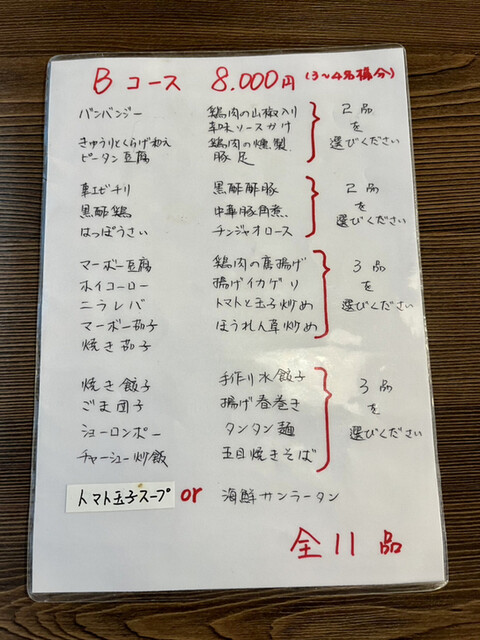 B コース 8,000円 (3〜4名様分)
バンバンジー 鶏肉の山椒入り
辛味ソースかけ
きゅうりとくらげ和え 鶏肉の燻製
ピータン豆腐 豚足
2品
を
選びください
車エビチリ 黒酢酢豚
黒酢鶏 中華豚角煮
はっぽうさい チンジャオロース
2品
を
選びください
マーボー豆腐 鶏肉の唐揚げ
ホイコーロー 揚げイカゲソ
ニラレバ トマトと玉子炒め
マーボー茄子 ほうれん草炒め
焼き茄子
3品
を
選びください
焼き餃子 手作り水餃子
ごま団子 揚げ春巻き
ショーロンポー タンタン麺
チャーシュー炒飯 五目焼きそば
3品
を
選びください
トマト玉子スープ or 海鮮サンラータン
全11品